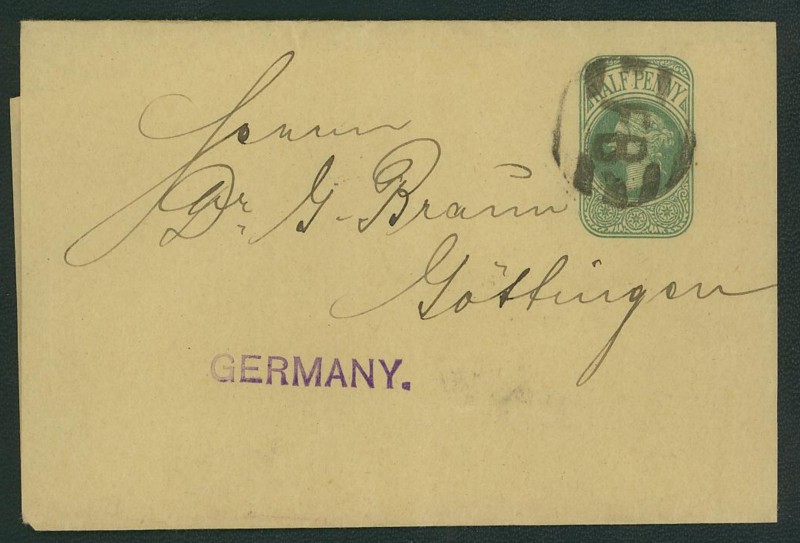 HALF PENNY
Herrn
Dr. G. Braun
Göttingen
GERMANY.